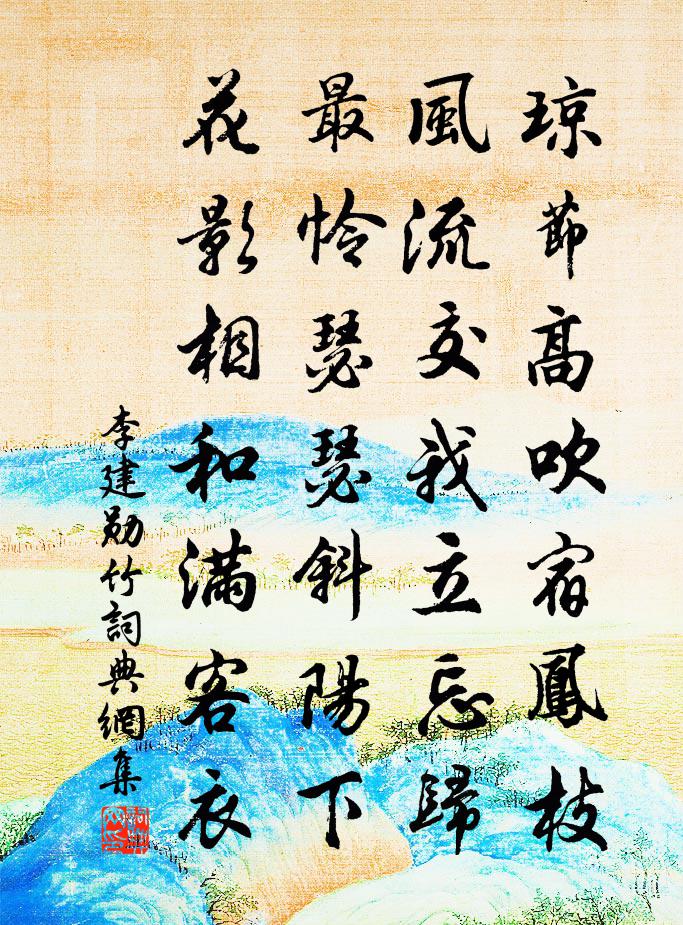 琼節高吹宿鳳枝
風流交我立忘歸
最怜瑟瑟斜陽下
花影相和滿客衣
李建勋竹詞典網集